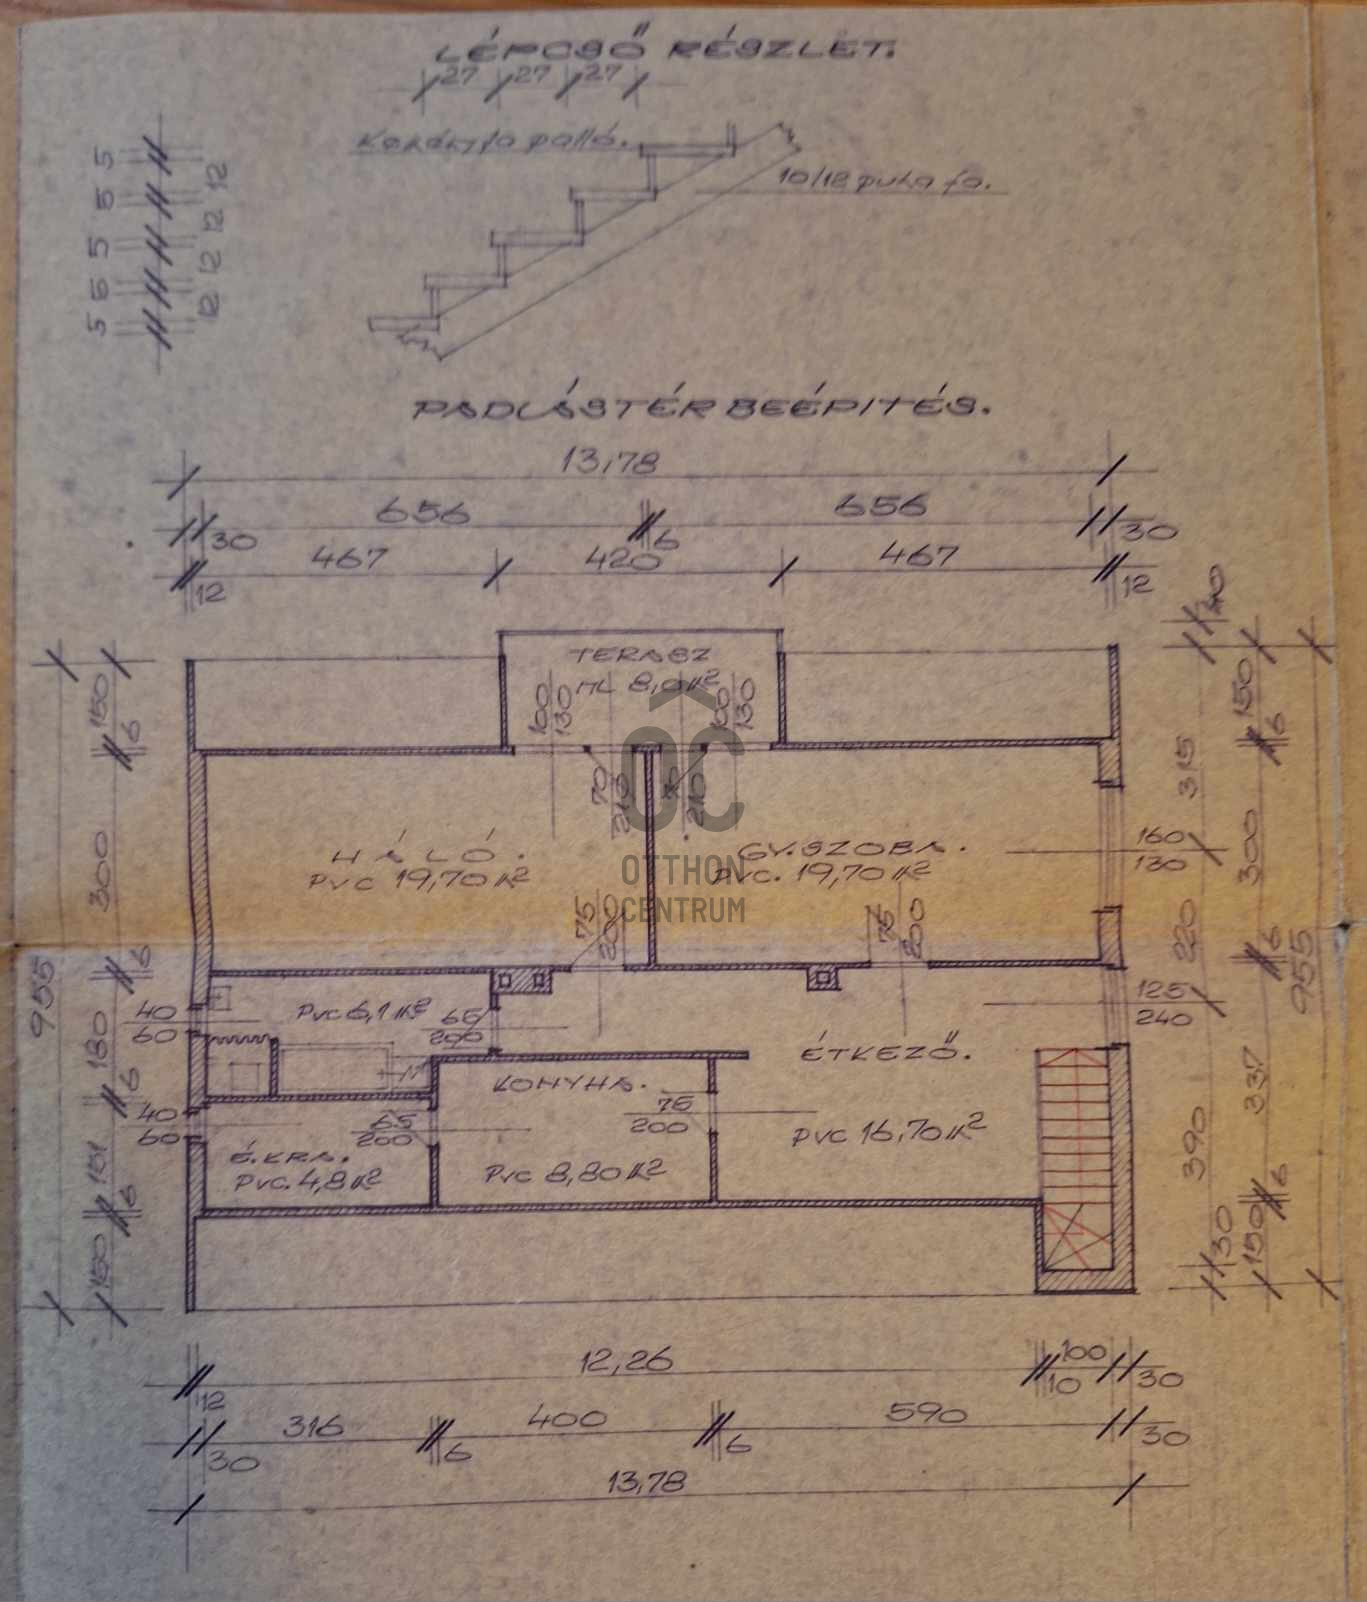 LÉPCSŐ RÉSZLET.
27 27 27
Keményfa palló.
10/12 puha fa.
5 5 5 5 5
12 12 12 12
PADLÁSTÉR BEÉPITÉS.
13,78
656 656
30 6 30
467 420 467
12 12
TERASZ
ML 8,0 M²
100 130
100 130
70 210
70 210
HÁLÓ.
PVC 19,70 M²
GY.SZOBA.
PVC. 19,70 M²
75 200
75 200
OC
OTTHON
CENTRUM
PVC 6,1 M²
65
200
40
60
40
60
65
200
75
200
KONYHA.
PVC 8,80 M²
ÉTKEZŐ.
PVC 16,70 M²
É.KRA.
PVC. 4,8 M²
160
130
125
240
955
150 6 300 6 180 6 151 6 150
315 220 390 30
150 6 300 6 337 6 150
955
12,26 100
12 10 30
316 400 590
30 6 6 30
13,78